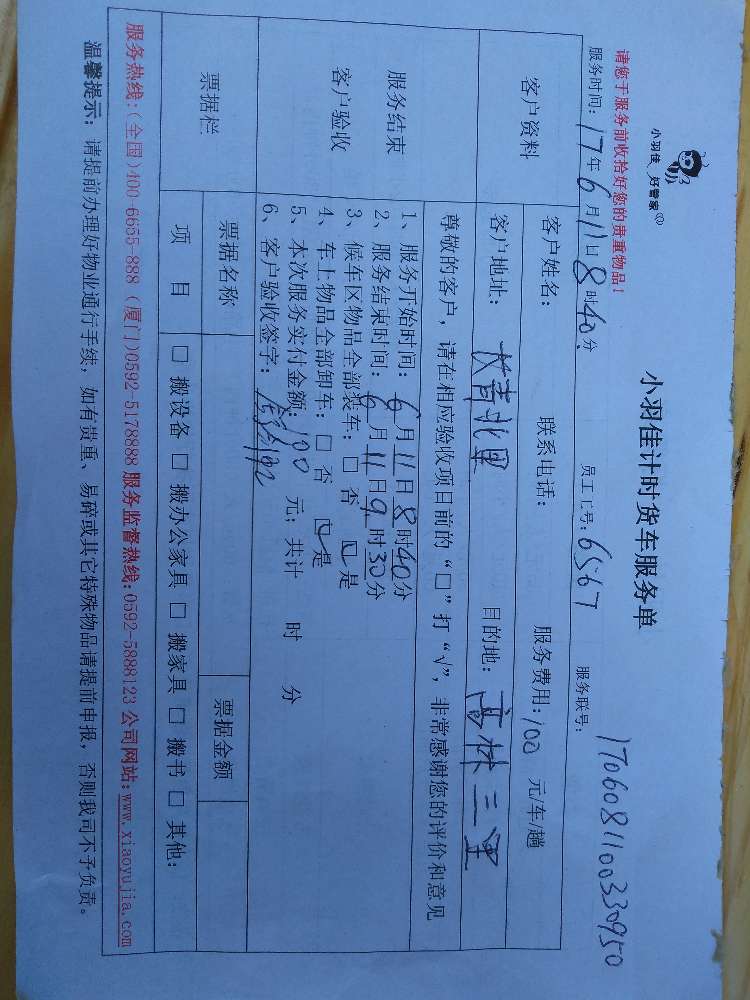 小羽佳 好管家
小羽佳计时货车服务单
请您于服务前收拾好您的贵重物品！
服务联号： 1706081100330950
服务时间：17年6月11日8时40分 员工工号：6567
客户资料
客户姓名： 联系电话： 服务费用：100 元/车/趟
客户地址： 北里 目的地：高林三里
服务结束
客户验收
尊敬的客户，请在相应验收项目前的“□”打“√”，非常感谢您的评价和意见
1、服务开始时间：6月11日8时40分
2、服务结束时间：6月11日9时30分
3、候车区物品全部装车：□ 否 ☑ 是
4、车上物品全部卸车：□ 否 ☑ 是
5、本次服务实付金额：100 元；共计 时 分
6、客户验收签字：
票据栏
票据名称 票据金额
项 目 □ 搬设备 □ 搬办公家具 □ 搬家具 □ 搬书 □ 其他：
服务热线：(全国)400-6655-888 (厦门)0592-5178888 服务监督热线：0592-5888123 公司网站：www.xiaoyujia.com
温馨提示：请提前办理好物业通行手续，如有贵重、易碎或其它特殊物品请提前申报，否则我司不予负责。